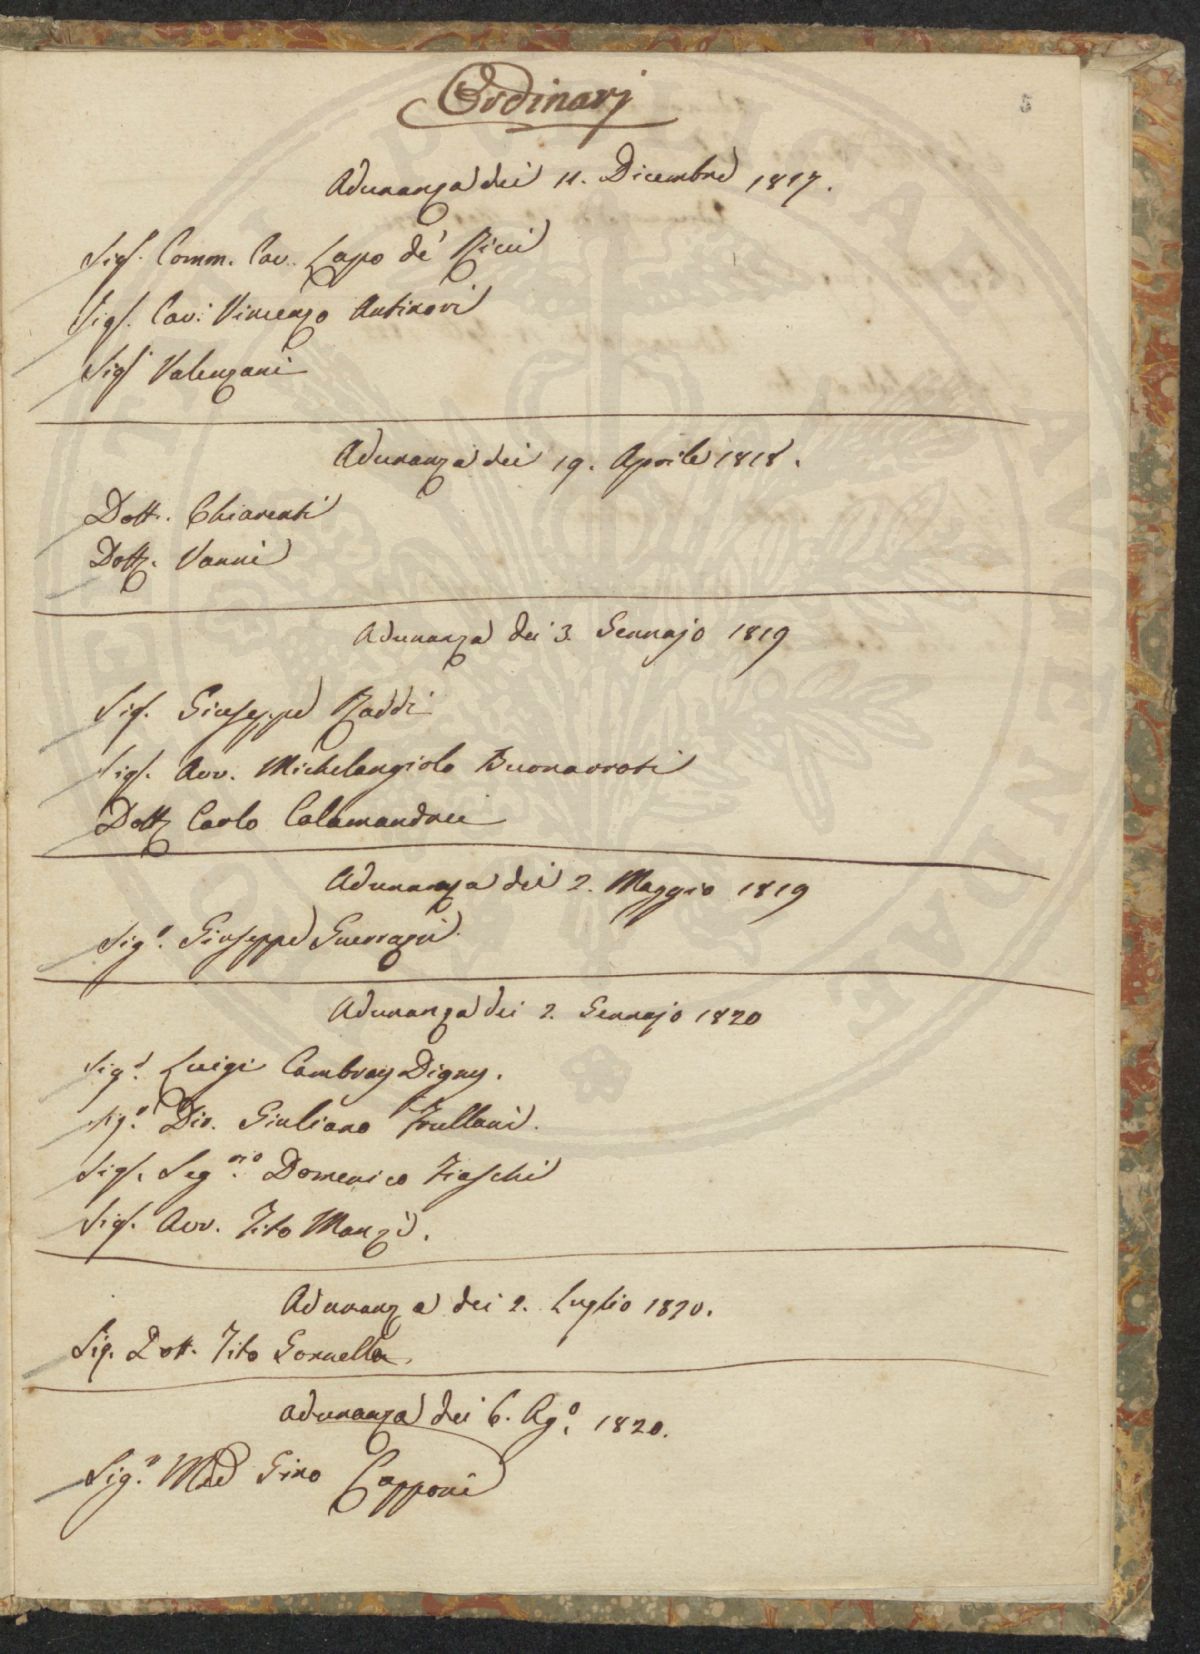 Ordinarj
5
Adunanza dei 11. Dicembre 1817.
Sigr. Comm. Cav. Lapo de' Ricci
Sigr. Cav. Vincenzo Antinori
Sigr Valenzani
Adunanza dei 19. Aprile 1818.
Dott. Chiarenti
Dott. Vanni
Adunanza dei 3. Gennajo 1819
Sigr. Giuseppe Raddi
Sigr. Avv. Michelangiolo Buonarroti
Dott Carlo Calamandrei
Adunanza dei 2. Maggio 1819
Sigr. Giuseppe Guerrazzi
Adunanza dei 2. Gennajo 1820
Sigr. Luigi Cambray Digny.
Sigr. Dir. Giuliano Frullani.
Sigr. Segrio. Domenico Fiaschi
Sigr. Avv. Tito Manzi.
Adunanza dei 2. Luglio 1820.
Sig. Dott. Tito Gonnella.
Adunanza dei 6. Ago. 1820.
Sigr. Mse Gino Capponi